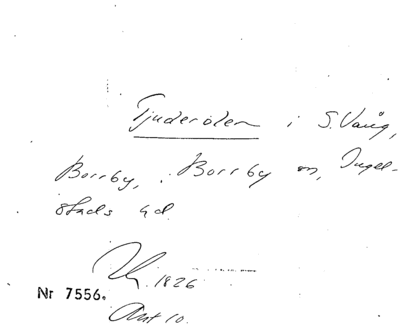 Tjuderölen i S. Vång,
Borrby, Borrby sn, Ingel-
stads hd
1826
Nr 7556.
Akt 10